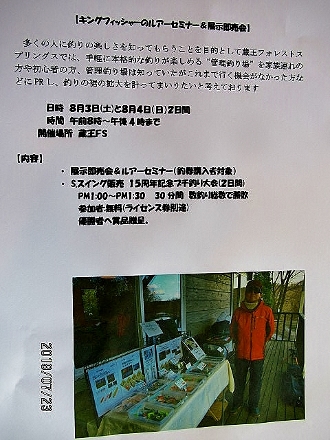 【キングフィッシャーのルアーセミナー＆展示即売会】
多くの人に釣の楽しさを知ってもらうことを目的として蔵王フォレストス
プリングスでは、手軽に本格的な釣りが楽しめる"管理釣り場"を家族連れの
方や初心者の方、管理釣り場は知っていたがこれまで行く機会がなかった方な
どにPRし、釣りの裾の拡大を計ってまいりたいと考えております
日時 8月3日(土)と8月4日(日)2日間
時間 午前8時～午後4時まで
開催場所 蔵王FS
【内容】
・ 展示即売会＆ルアーセミナー(釣券購入者対象)
・ S.スイング販売 15周年記念プチ釣り大会(2日間)
PM1:00～PM1:30 30分間 数釣り総数で勝敗
参加者:無料(ライセンス券別途)
優勝者へ賞品贈呈。
2019/07/23